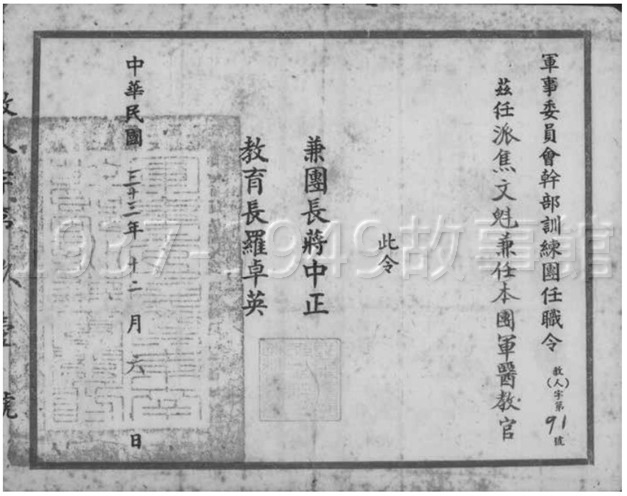 軍事委員會幹部訓練團任職令
教(人)字第91號
茲任派焦文魁兼任本團軍醫教官
此令
兼團長蔣中正
教育長羅卓英
中華民國三十三年十二月六日
1937-1949故事館